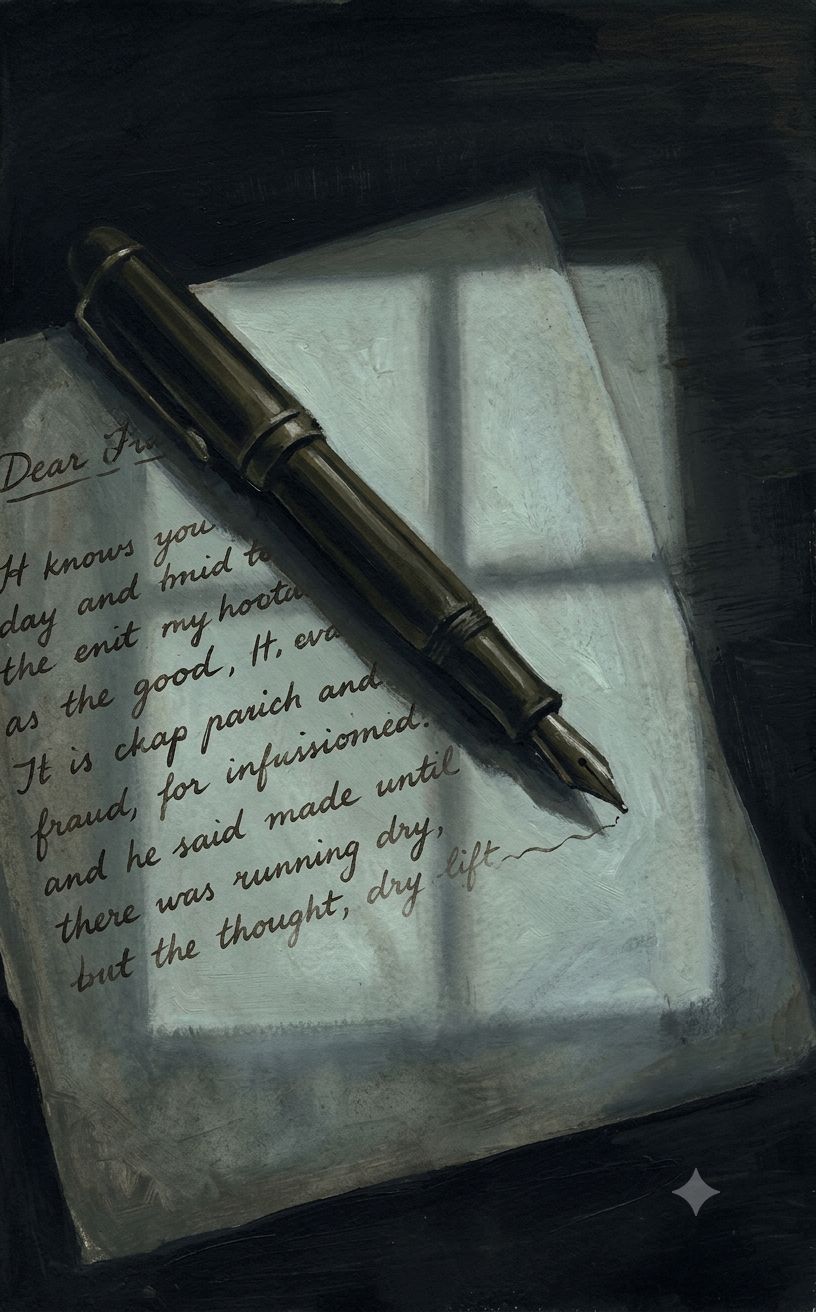 Dear Fra
It knows you
day and tmid to
the enit my hoota
as the good, It, eva
It is ckap parich and
fraud, for infussiomed.
and he said made until
there was running dry,
but the thought, dry lift